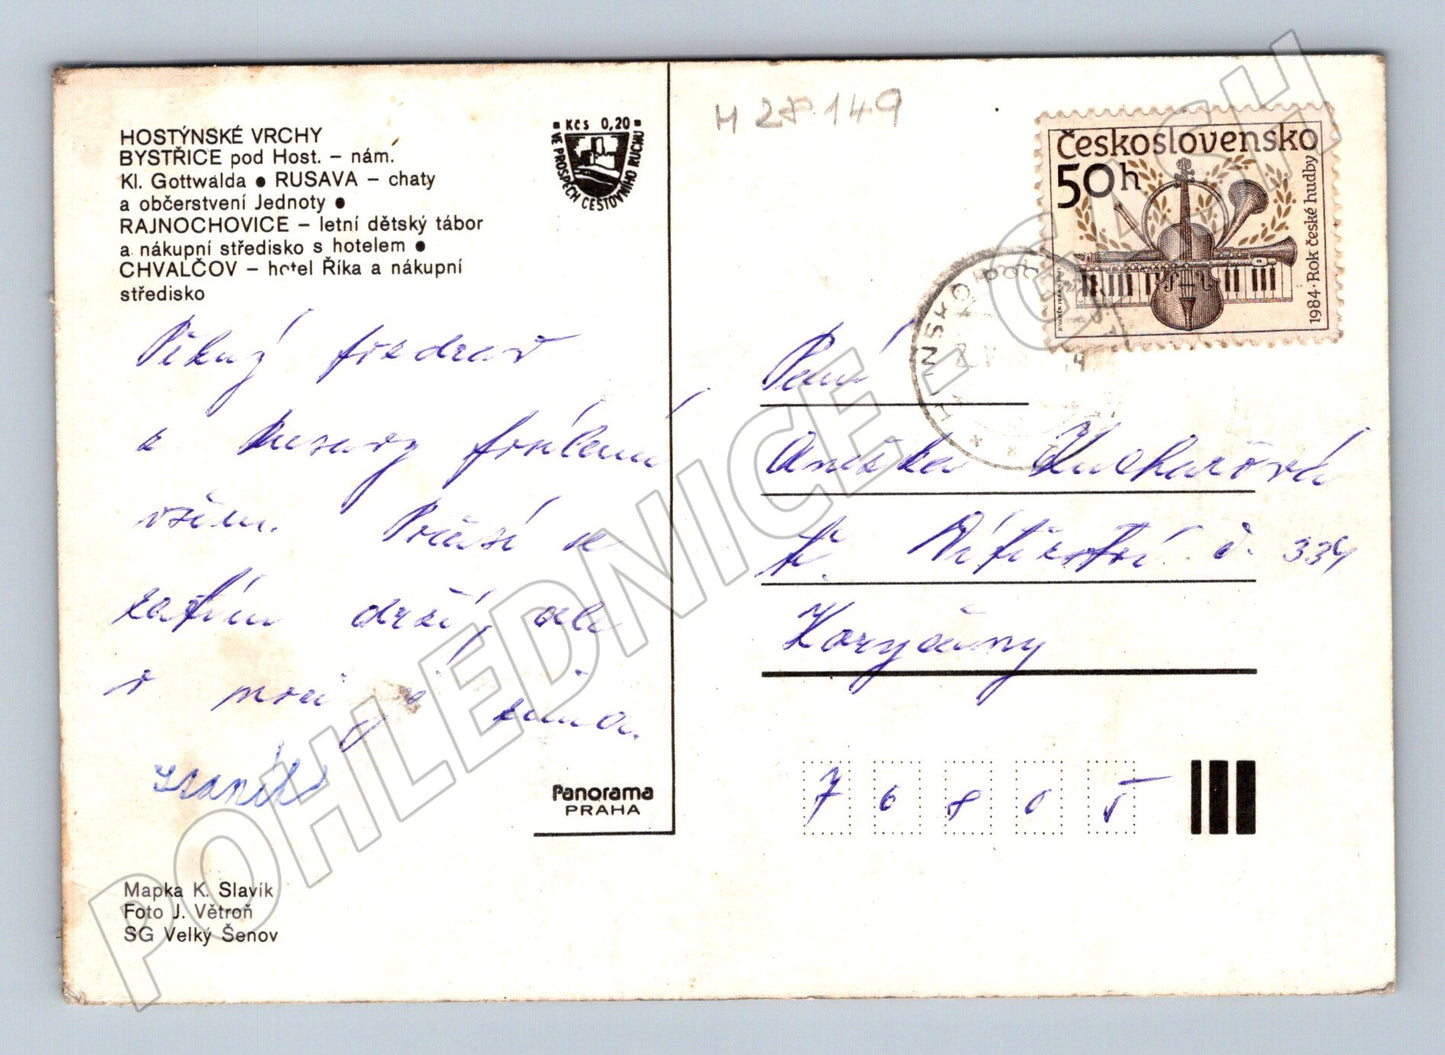 HOSTÝNSKÉ VRCHY
BYSTŘICE pod Host. – nám.
Kl. Gottwalda ● RUSAVA – chaty
a občerstvení Jednoty ●
RAJNOCHOVICE – letní dětský tábor
a nákupní středisko s hotelem ●
CHVALČOV – hotel Říka a nákupní
středisko
Kčs 0,20
VE PROSPĚCH CESTOVNÍHO RUCHU
M 28 149
Československo
50h
1984 · Rok české hudby
Pěkný pozdrav
z Rusavy posílám
všem. Počasí se
zatím drží, ale
v noci je zima.
Paní
Anežka Kuchařová
Koryčany
76805
Panorama
PRAHA
Mapka K. Slavík
Foto J. Větroň
SG Velký Šenov
POHLEDNICE - CASH